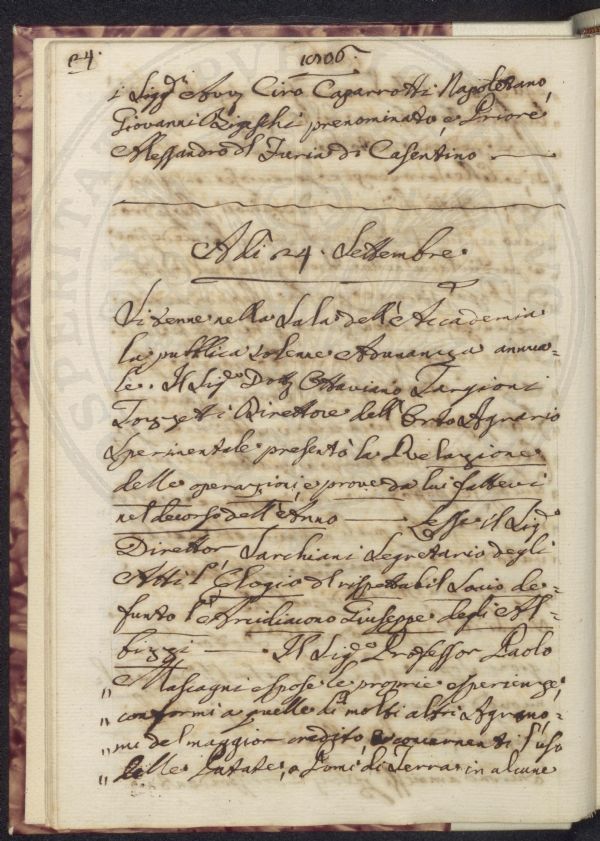 24.
1806.
i Sigg.ri Avv. Ciro Caparrotti Napoletano,
Giovanni Bigeschi prenominato, e Priore
Alessandro del Turia di Casentino
A dì 24. Settembre
Si tenne nella Sala dell'Accademia
la pubblica solenne Adunanza annua=
le. Il Sig.r Dott. Ottaviano Targioni
Tozzetti Direttore dell'Orto Agrario
Sperimentale presentò la Relazione
delle operazioni, e prove da lui fattevi
nel decorso dell'Anno — Lesse il Sig.r
Direttor Sarchiani Segretario degli
Atti l'Elogio del rispettabil Socio de=
funto l'Arcidiacono Giuseppe degli Al
bizzi — Il Sig.r Professor Paolo
" Mascagni espose le proprie esperienze,
" conformi a quelle di molti altri Agrono=
" mi del maggior credito, concernenti l'uso
" delle Patate, o Pomi di Terra in alcune